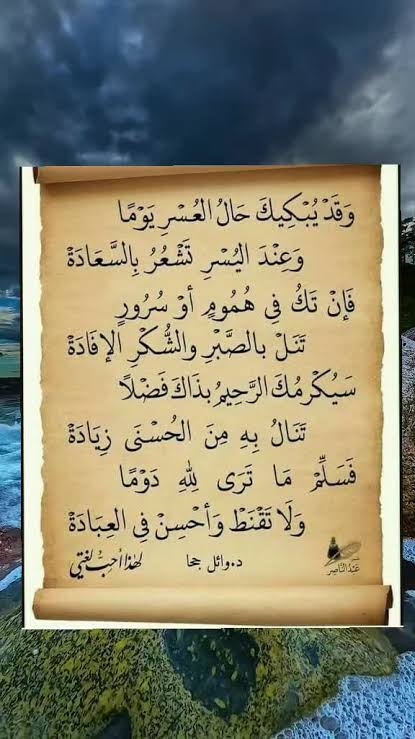 وَقَدْ يُبْكِيكَ حَالُ العُسْرِ يَوْمًا
وَعِنْدَ اليُسْرِ تَشْعُرُ بِالسَّعَادَةْ
فَإِنْ تَكُ فِي هُمُومٍ أَوْ سُرُورٍ
تَنَلْ بالصَّبْرِ والشُّكْرِ الإفَادَةْ
سَيُكْرِمُكَ الرَّحِيمُ بِذَاكَ فَضْلًا
تَنَالُ بِهِ مِنَ الحُسْنَى زِيَادَةْ
فَسَلِّمْ مَا تَرَى لِلهِ دَوْمًا
وَلَا تَقْنَطْ وَأَحْسِنْ فِي العِبَادَةْ
د.وائل جحا
لهذا أحب لغتي
عَبْدُ النَّاصِر